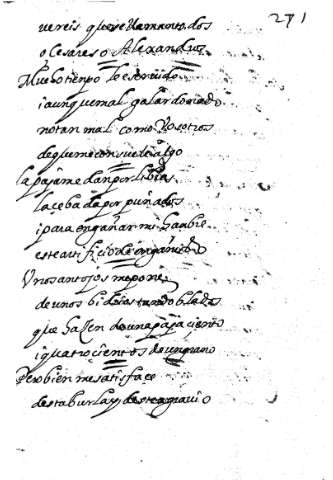 271
vereis que se llamaron dos
o Cesares o Alexandros
Mucho tienpo le e seruido
i aunque mal galardonado
no tan mal como Vosotros
de que me consuelo algo
la paja me dan por libras
la çebada por puñados
i para engañar mi hanbre
este artifiçio de engaño
Vnos antojos me pone
de unos bidrios tan doblados
que hazen de una paja ciento
i quatroçientos de un grano
Pero bien me satisfaçe
desta burla y deste agrauio